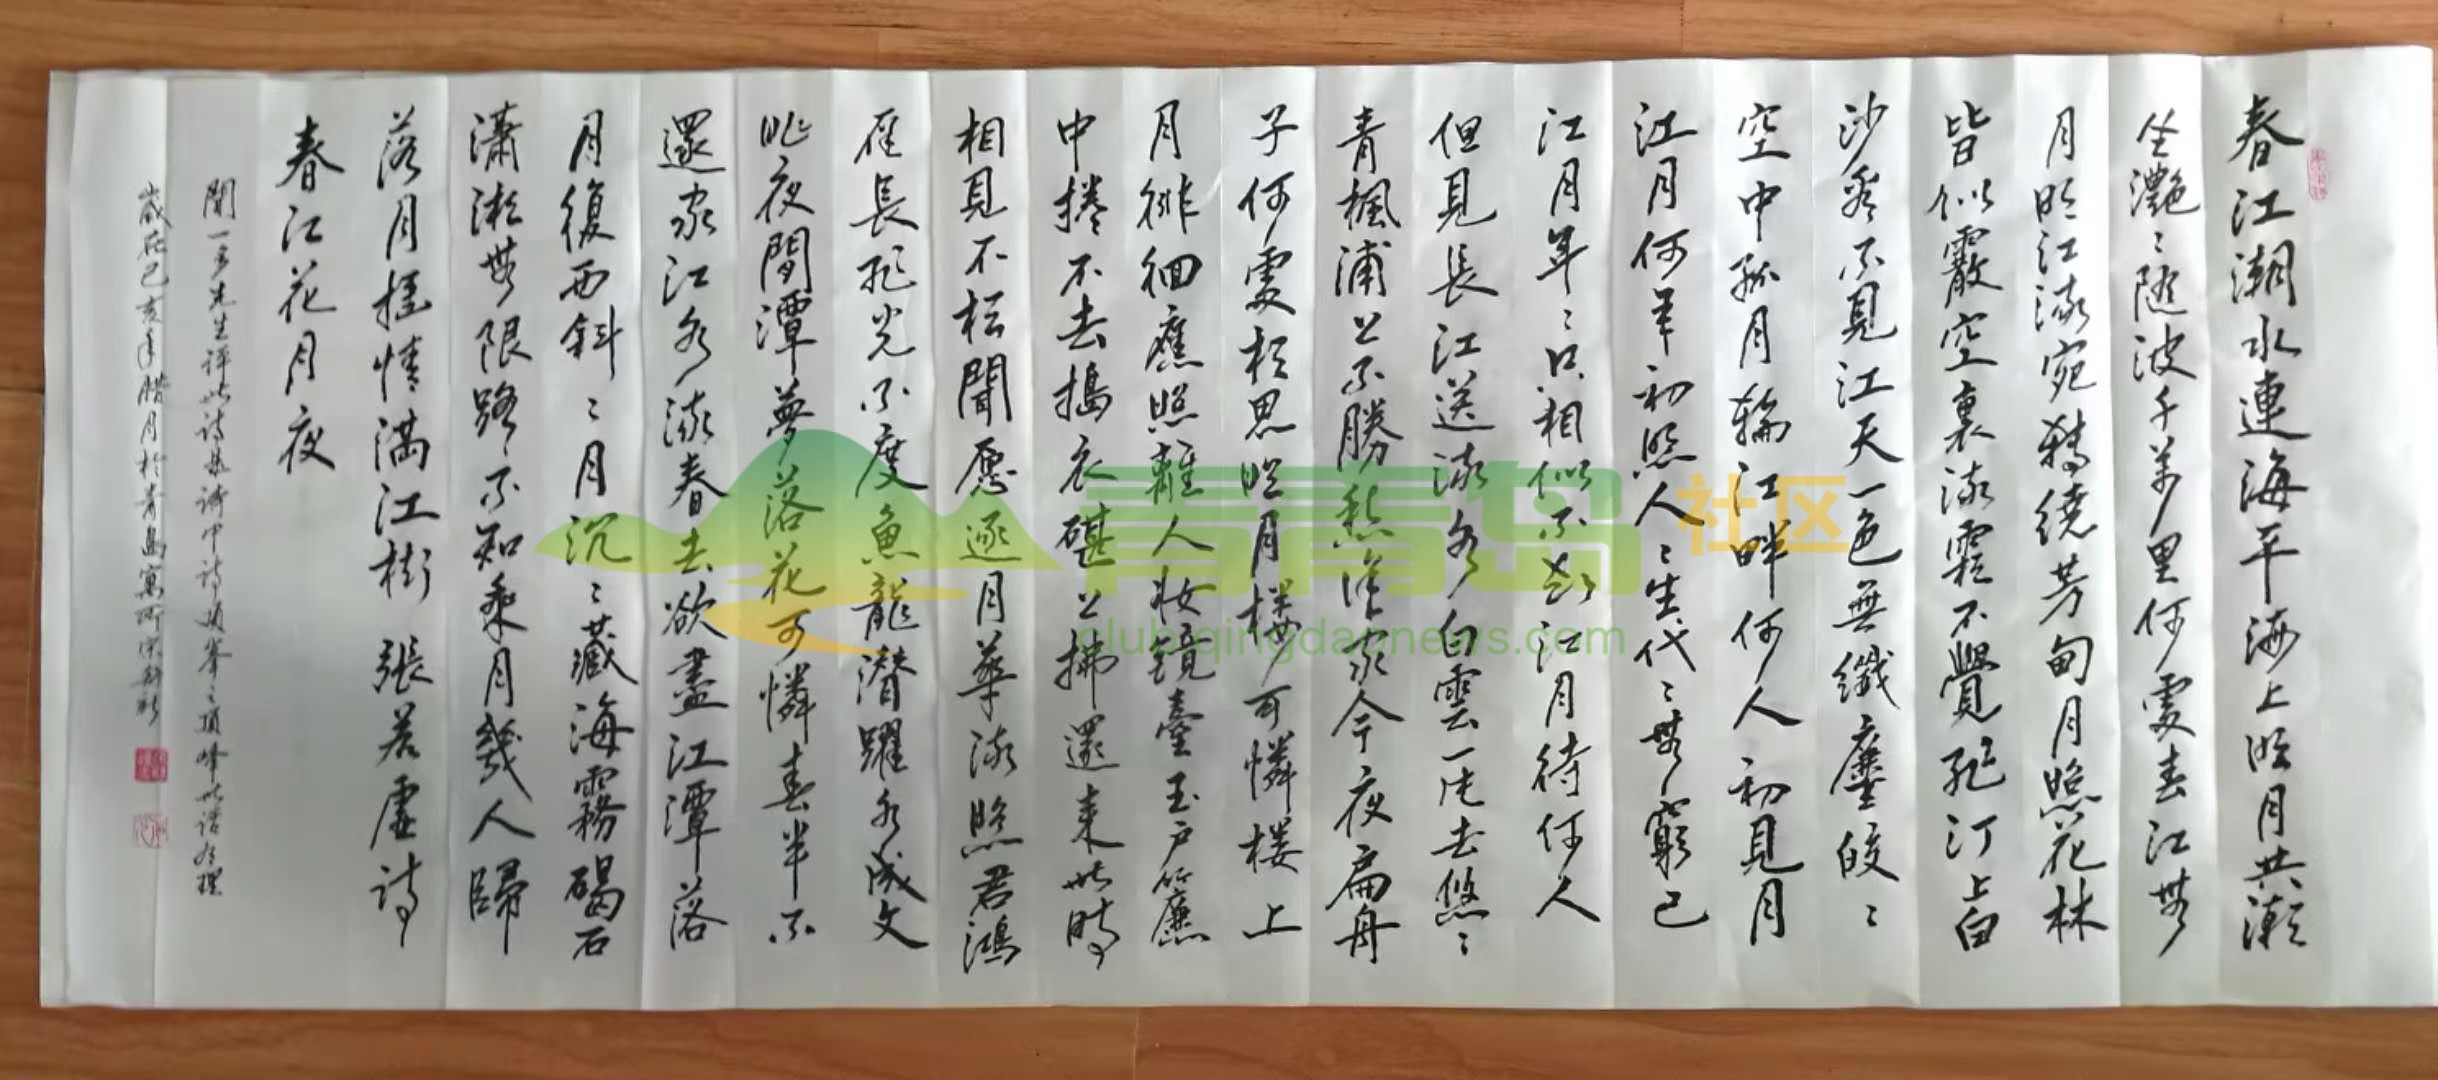 春江潮水連海平海上明月共潮
生灔〻隨波千萬里何處春江無
月明江流宛轉繞芳甸月照花林
皆似霰空裏流霜不覺飛汀上白
沙看不見江天一色無纖塵皎〻
空中孤月輪江畔何人初見月
江月何年初照人〻生代〻無窮已
江月年〻只相似不知江月待何人
但見長江送流水白雲一片去悠〻
青楓浦上不勝愁誰家今夜扁舟
子何處相思明月樓可憐樓上
月徘徊應照離人妝鏡臺玉戶簾
中捲不去搗衣碪上拂還來此時
相見不相聞愿逐月華流照君鴻
雁長飛光不度魚龍潛躍水成文
昨夜閒潭夢落花可憐春半不
還家江水流春去欲盡江潭落
月復西斜〻月沉〻藏海霧碣石
瀟湘無限路不知乘月幾人歸
落月搖情滿江樹 張若虛詩
春江花月夜
聞一多先生評此詩是詩中詩頂峯之頂峰此語有理
歲在己亥年臘月於青島寓所宋
青青岛社区
club.qingdaonews.com